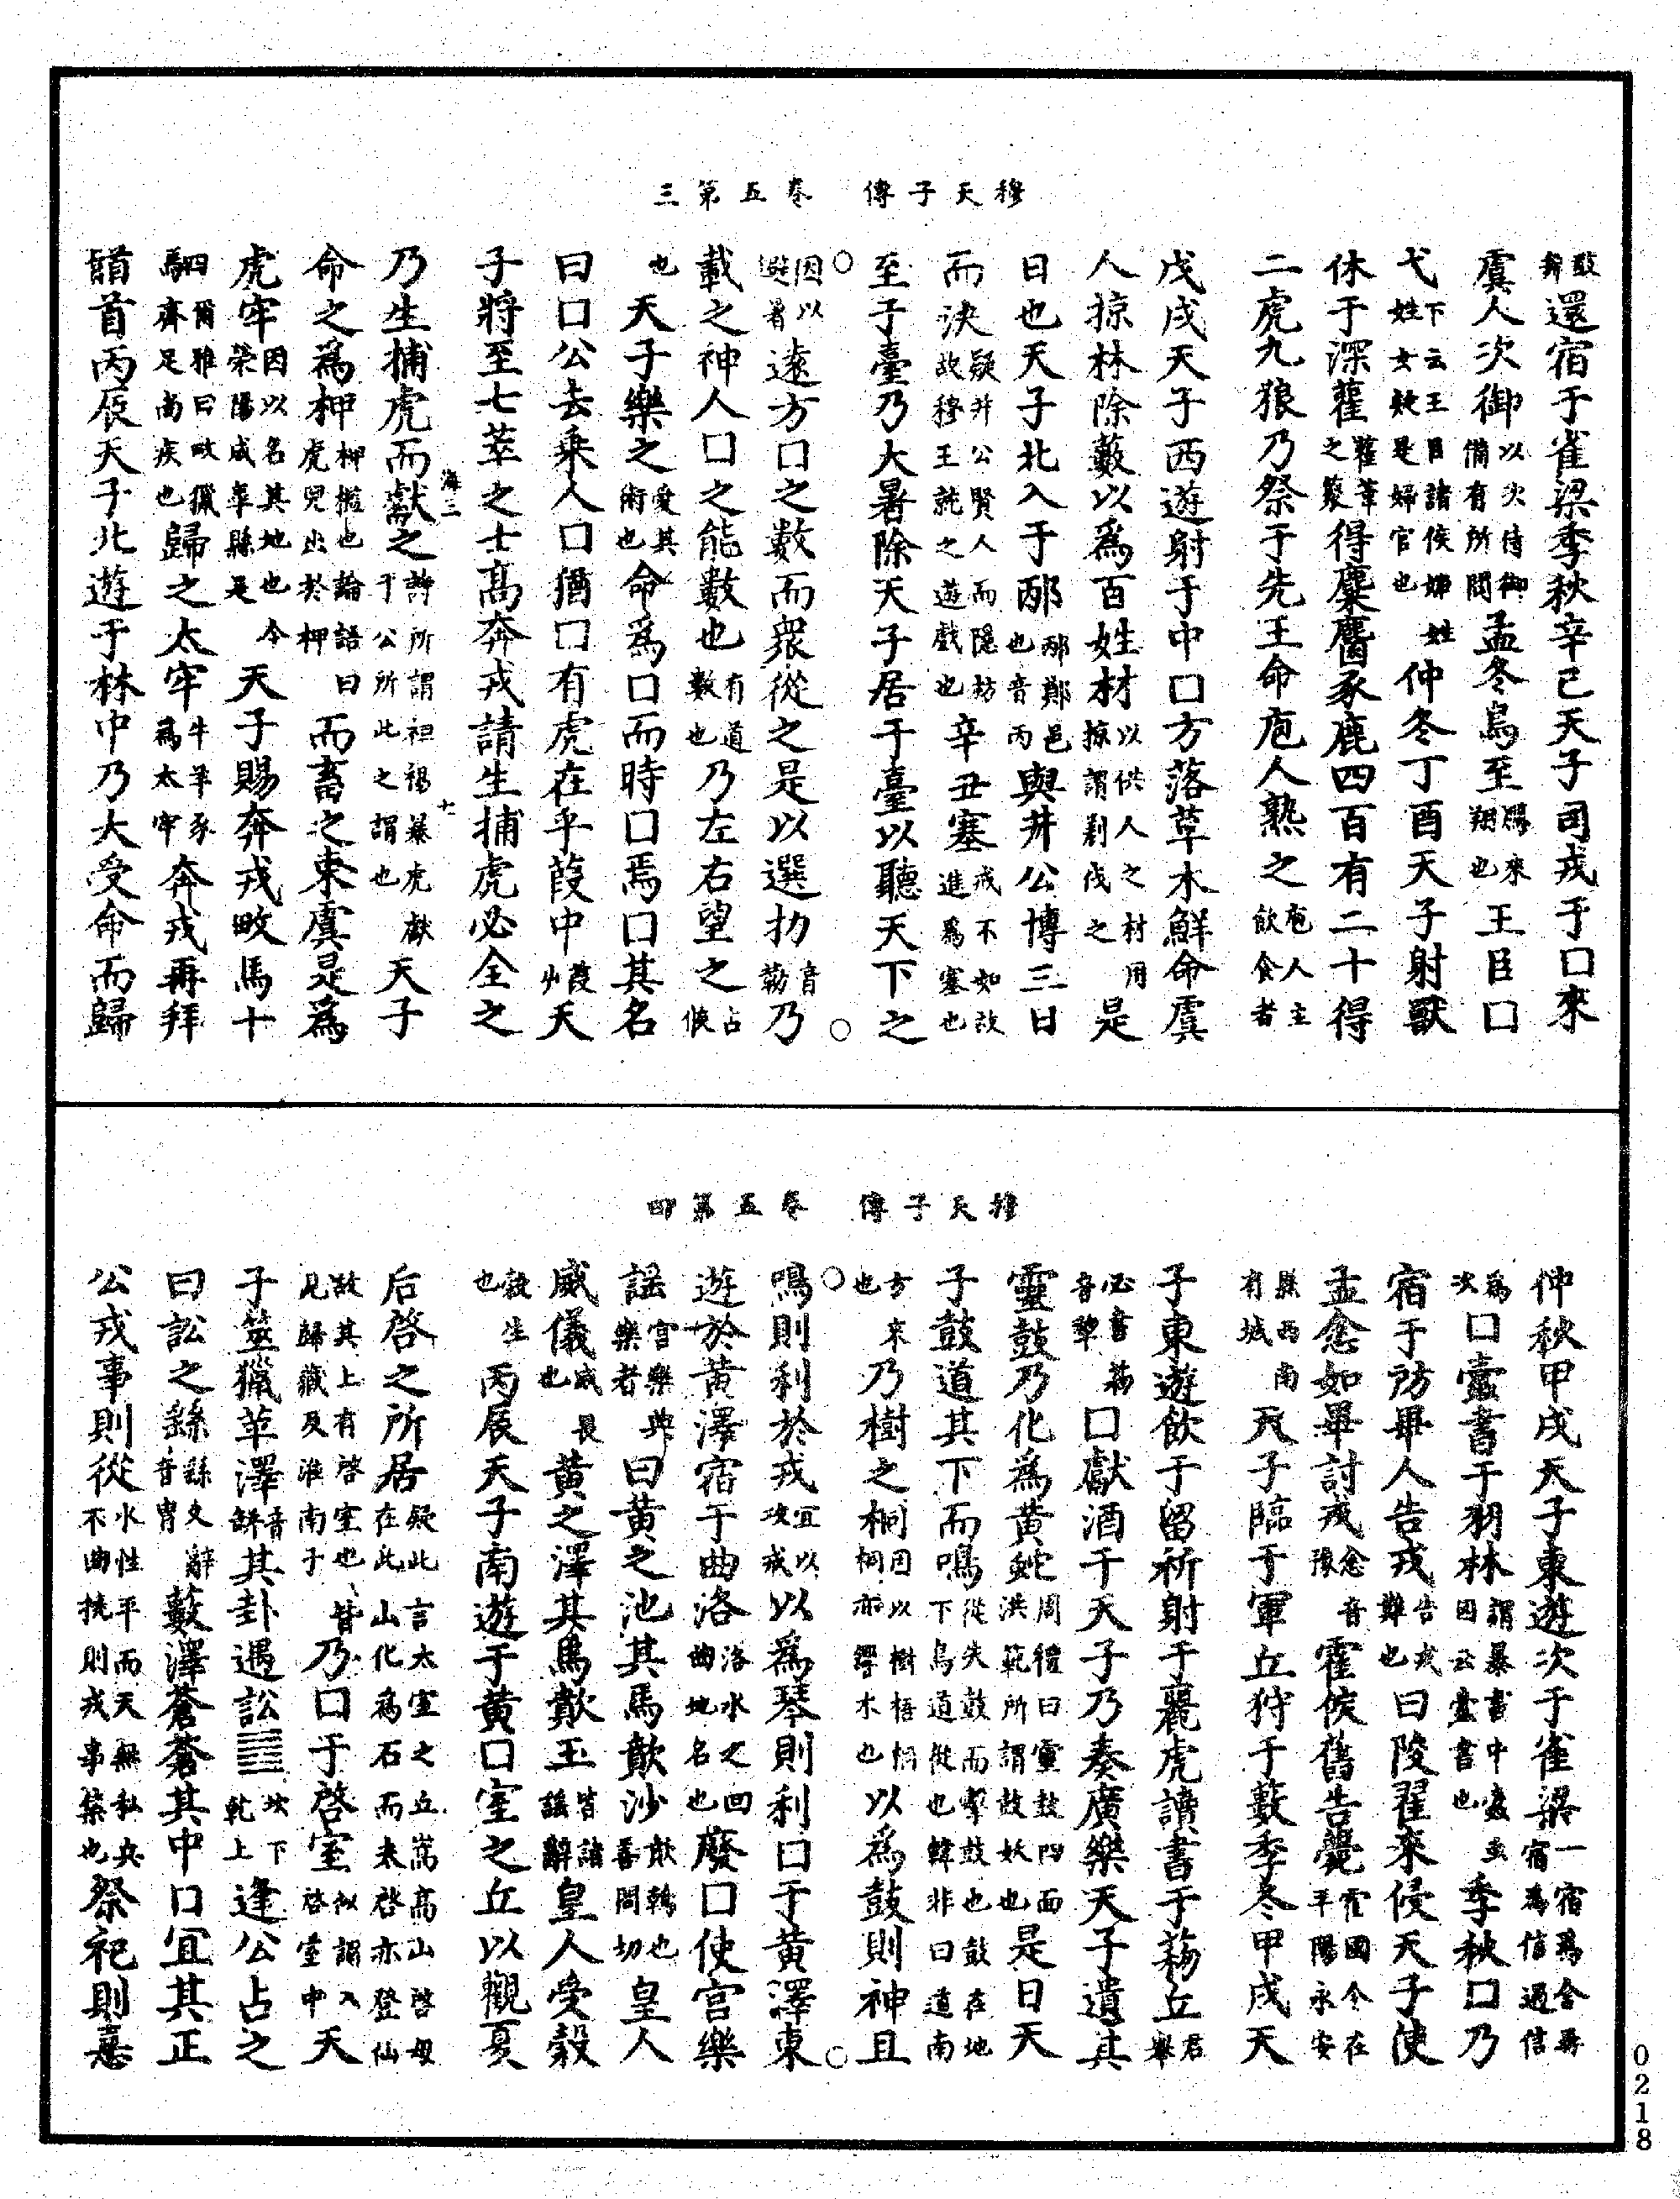 穆天子傳　卷五第三
數辨還宿于雀梁季秋辛巳天子司戎于口來
虞人次御以次侍御備有所問孟冬鳥至鴈來翔也王臣口
弋下云王臣諸侯姬姓姓女疑是婦官也仲冬丁酉天子射獸
休于深雚雚葦之藂得麋麕豕鹿四百有二十得
二虎九狼乃祭于先王命庖人熟之庖人主飲食者
戊戌天子西遊射于中口方落草木鮮命虞
人掠林除藪以爲百姓材以供人之材用掠謂剝伐之是
日也天子北入于邴邴鄭邑也音丙與井公博三日
而決疑井公賢人而隱枋故穆王就之遊戲也辛丑塞戎不如故進爲塞也
至于臺乃大暑除天子居于臺以聽天下之
因以避暑遠方口之數而衆從之是以選扐音勒乃
載之神人口之能數也有道數也乃左右望之占候
也天子樂之愛其術也命爲口而時口焉口其名
曰口公去乘人口猶口有虎在乎葭中葭艸天
子將至七萃之士高奔戎請生捕虎必全之
乃生捕虎而獻之詩所謂袒裼暴虎獻于公所此之謂也天子
命之爲柙柙檻也論語曰虎兕出於柙而畜之東虞是爲
虎牢因以名其地也今滎陽成皋縣是天子賜奔戎畋馬十
駟爾雅曰畋獵四馬齊足尚疾也歸之太牢牛羊豕爲太牢奔戎再拜
䭫首丙辰天子北遊于林中乃大受命而歸
穆天子傳　卷五第四
仲秋甲戌天子東遊次于雀梁一宿爲舍再宿爲信過信
爲次口蠹書于羽林謂暴書中蠹蟲因云蠹書也季秋口乃
宿于訪畢人告戎告戎難也曰陵翟來侵天子使
孟悆如畢討戎悆音豫霍侯舊告薨霍國今在平陽永安
縣西南有城天子臨于軍丘狩于藪季冬甲戌天
子東遊飲于留祈射于麗虎讀書于蒭丘君舉
必書蒭音犂口獻酒于天子乃奏廣樂天子遺其
靈鼓乃化爲黃蛇周禮曰靈鼓四面洪範所謂鼓妖也是日天
子鼓道其下而鳴從失鼓而擊鼓也鼓在地下鳥道從也韓非曰道南
方來也乃樹之桐因以樹梧桐桐亦響木也以爲鼓則神且
鳴則利於戎宜以攻戎以爲琴則利口于黃澤東
遊於黃澤宿于曲洛洛水之回曲地名也廢口使宮樂
謠宮樂典樂者曰黃之池其馬歕沙歕翰也普悶切皇人
威儀威畏也黃之澤其馬歕玉皆諸謠辭皇人受穀
穀生也丙辰天子南遊于黃口室之丘以觀夏
后啓之所居疑此言太室之丘嵩高山啓母在此山化爲石而夫啓亦登仙
故其上有啓室也皆見歸藏及淮南子乃口于啓室似謂入啓室中天
子筮獵苹澤音缾其卦遇訟䷅坎下乾上逢公占之
曰訟之繇繇爻辭音胄藪澤蒼蒼其中口宜其正
公戎事則從水性平而天無私央不曲撓則戎事集也祭祀則憙
0218